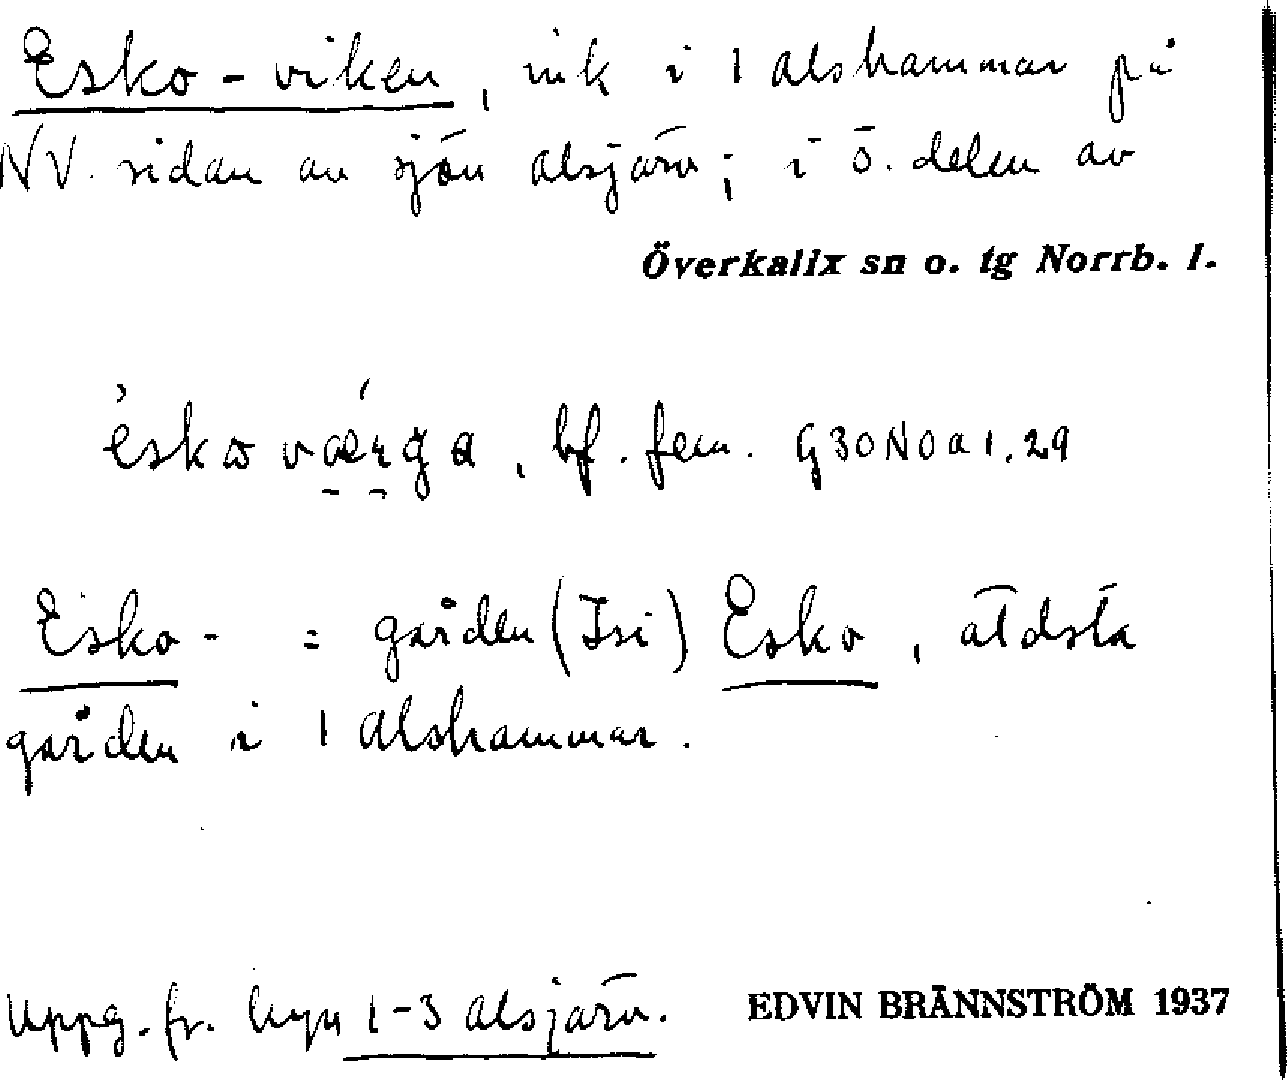 Esko-viken, vik i 1 Alshammar på
NV. sidan av sjön Alsjärv; i ö. delen av
Överkalix sn o. tg Norrb. l.
bf. fem. G30NOa1.29
Esko- = gården (Isi) Esko, äldsta
gården i 1 Alshammar.
Uppg. fr. byn 1-3 Alsjärv.
EDVIN BRÄNNSTRÖM 1937